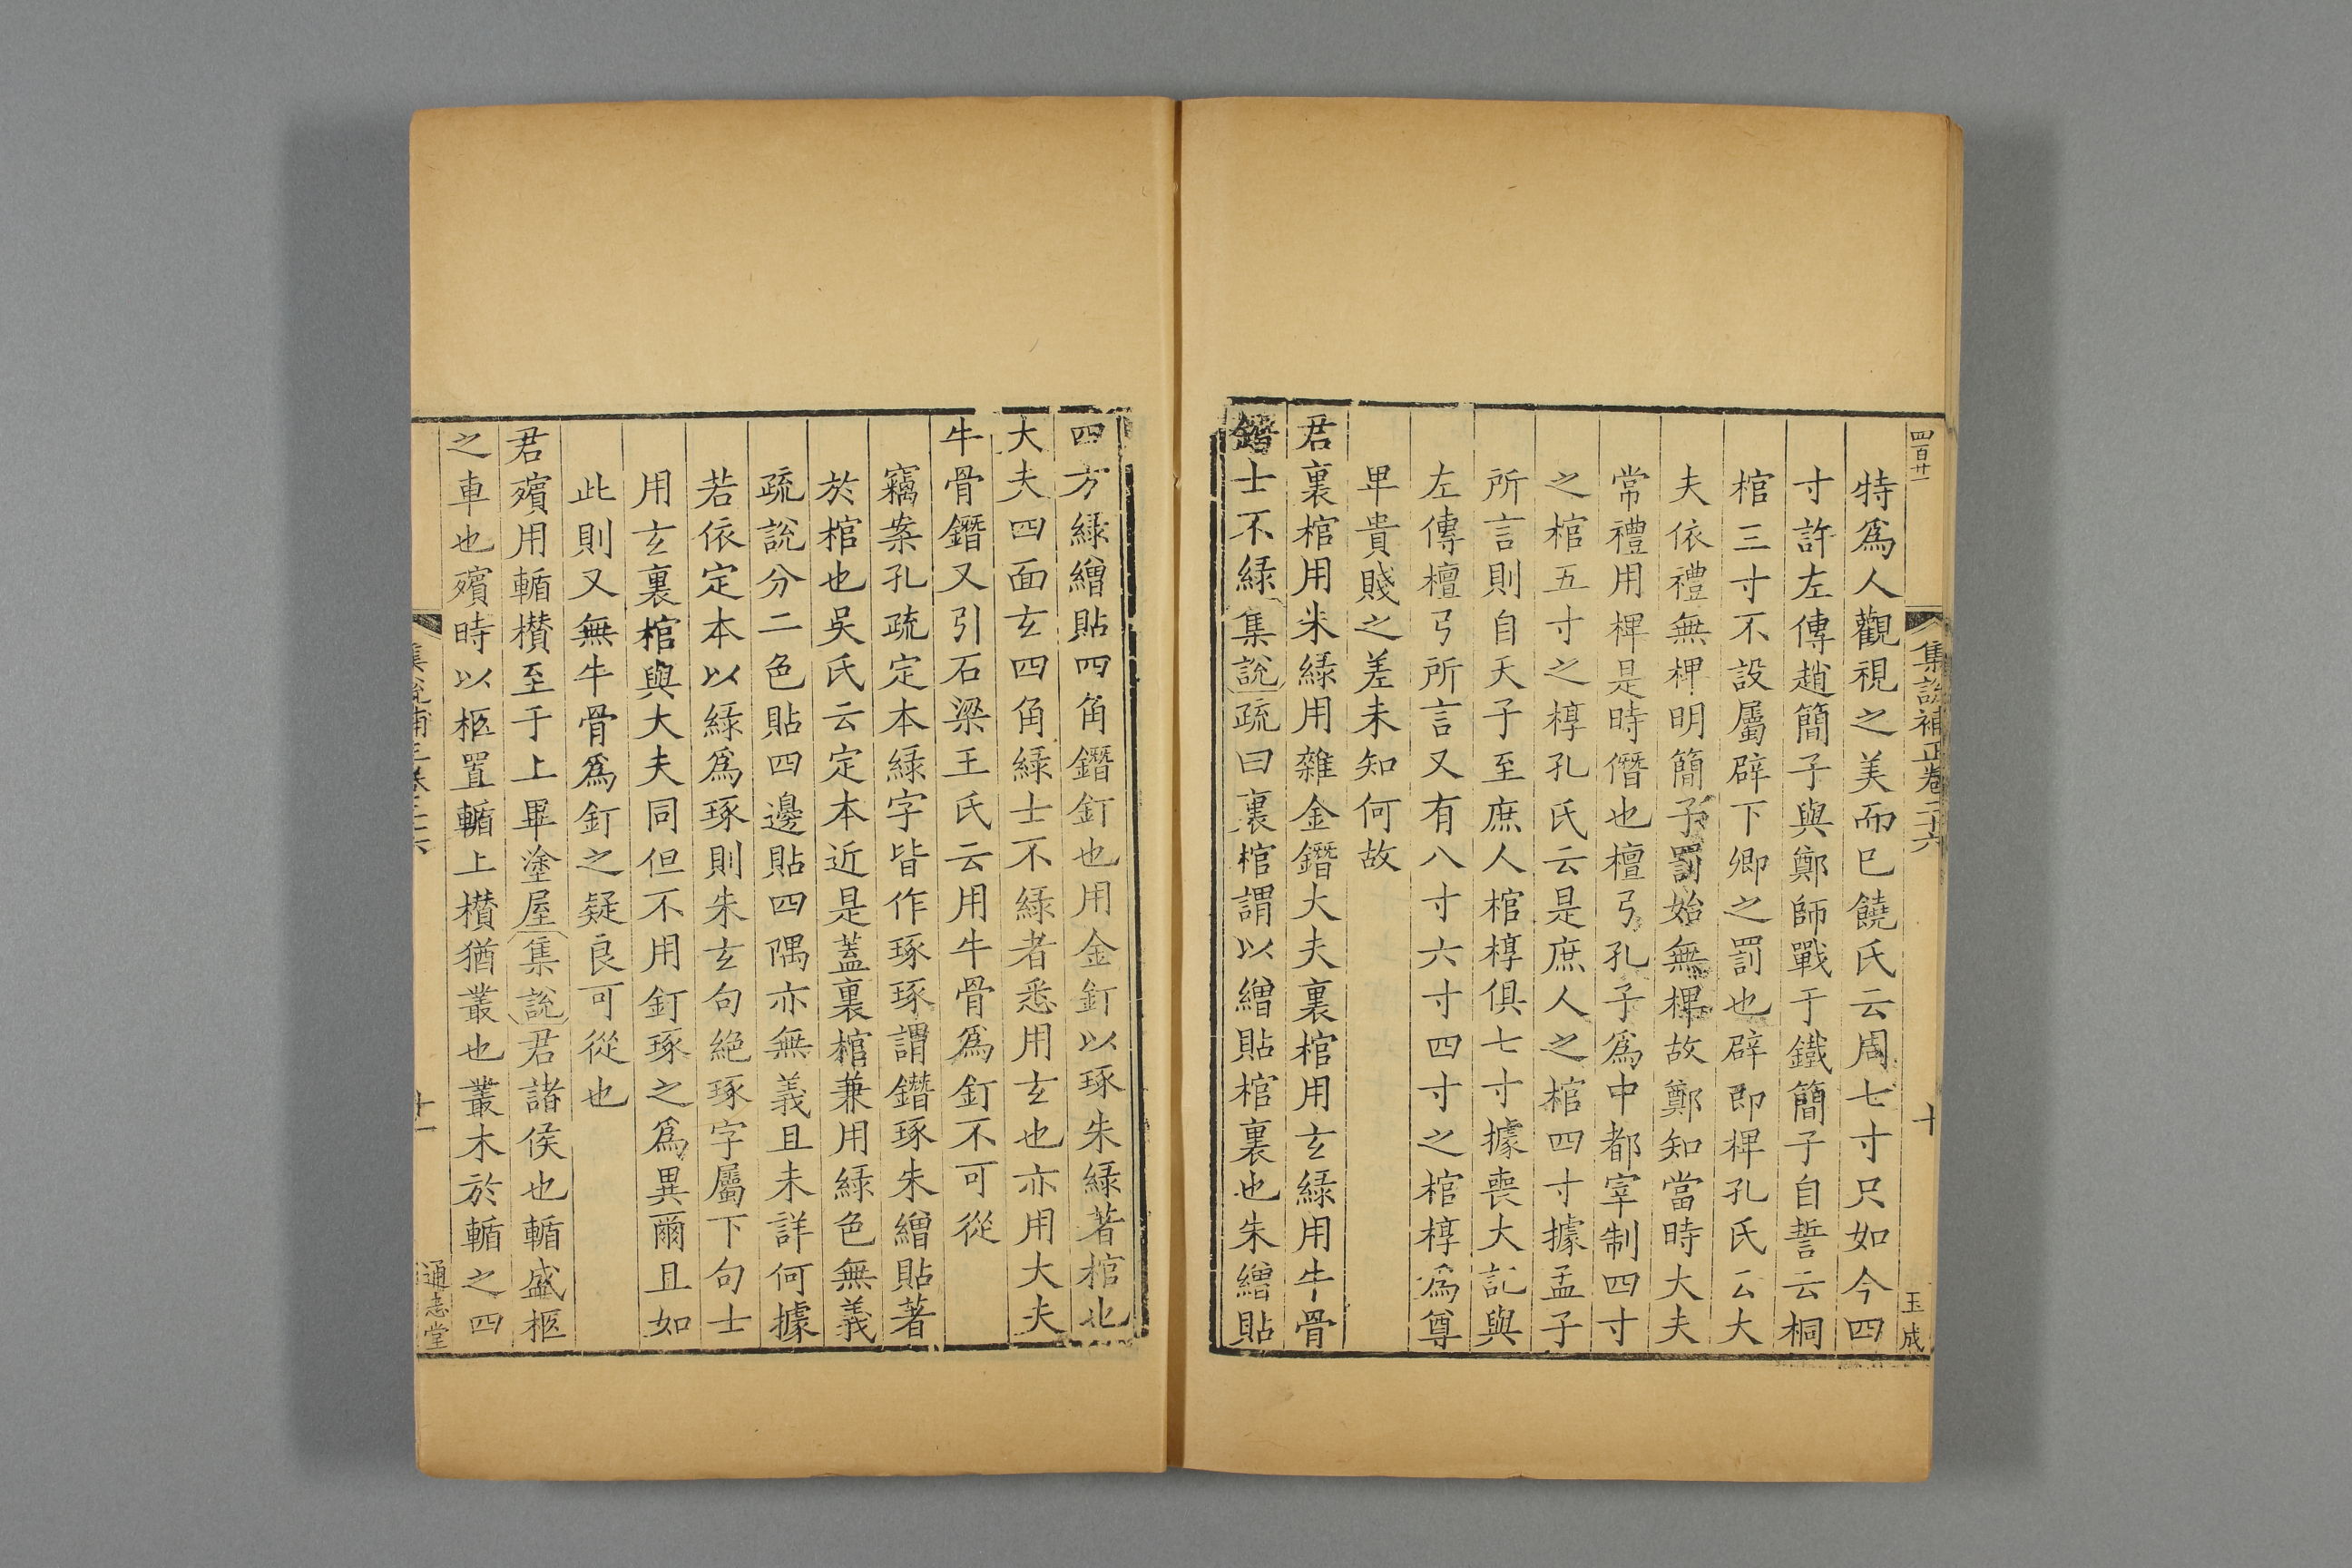 四百廿一
集說補正卷二十六
十
玉成
特爲人觀視之美而已饒氏云周七寸只如今四
寸許左傳趙簡子與鄭師戰于鐵簡子自誓云桐
棺三寸不設屬辟下卿之罰也辟即椑孔氏云大
夫依禮無椑明簡子罰始無椑故鄭知當時大夫
常禮用椑是時僭也檀弓孔子爲中都宰制四寸
之棺五寸之椁孔氏云是庶人之棺四寸據孟子
所言則自天子至庶人棺椁俱七寸據喪大記與
左傳檀弓所言又有八寸六寸四寸之棺椁爲尊
卑貴賤之差未知何故
君裏棺用朱緑用雜金鐕大夫裏棺用玄緑用牛骨
鐕士不緑集說疏曰裏棺謂以繒貼棺裏也朱繒貼
四方緑繒貼四角鐕釘也用金釘以琢朱緑著棺也
大夫四面玄四角緑士不緑者悉用玄也亦用大夫
牛骨鐕又引石梁王氏云用牛骨爲釘不可從
竊案孔疏定本緑字皆作琢琢謂鐕琢朱繒貼著
於棺也吳氏云定本近是蓋裏棺兼用緑色無義
疏說分二色貼四邊貼四隅亦無義且未詳何據
若依定本以緑爲琢則朱玄句絕琢字屬下句士
用玄裏棺與大夫同但不用釘琢之爲異爾且如
此則又無牛骨爲釘之疑良可從也
君殯用輴欑至于上畢塗屋集說君諸侯也輴盛柩
之車也殯時以柩置輴上欑猶叢也叢木於輴之四
集說補正卷二十六
十一
通志堂